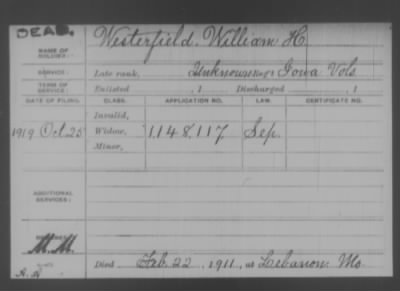 DEAD.
NAME OF SOLDIER: Westerfield, William H.
SERVICE: Late rank, Unknown Reg't Iowa Vols.
TERM OF SERVICE: Enlisted , 1 Discharged , 1
DATE OF FILING. CLASS. APPLICATION NO. LAW. CERTIFICATE NO.
Invalid,
1919 Oct. 25 Widow, 1148,117 Sep.
Minor,
ADDITIONAL SERVICES:
M.M.
Died Feb. 22, 1911, at Lebanon Mo